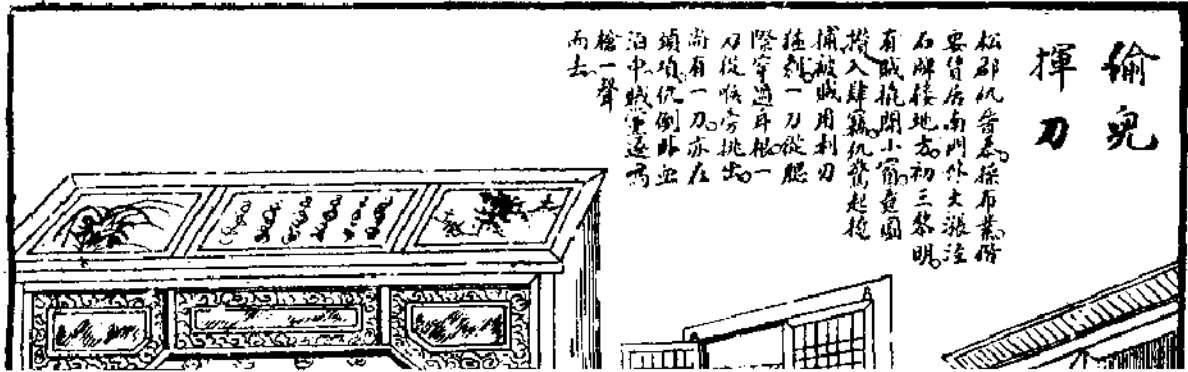 偷兒
揮刀
松郡仇晉泰。操布業。偕
妻賃居南門外大漲涇
石牌樓地方。初三黎明。
有賊撬開小窗。意圖
攢入肆竊。仇驚起
捕被賊用利刃
猛刺。一刀從腮
際穿過耳根。一
刀從喉旁挑出。
尚有一刀。亦在
頸項。仇倒卧血
泊中。賊黨遂鳴
槍一聲
而去。